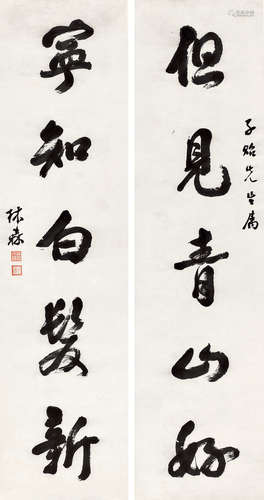 但見青山好
子貽先生屬
寧知白髮新
林森